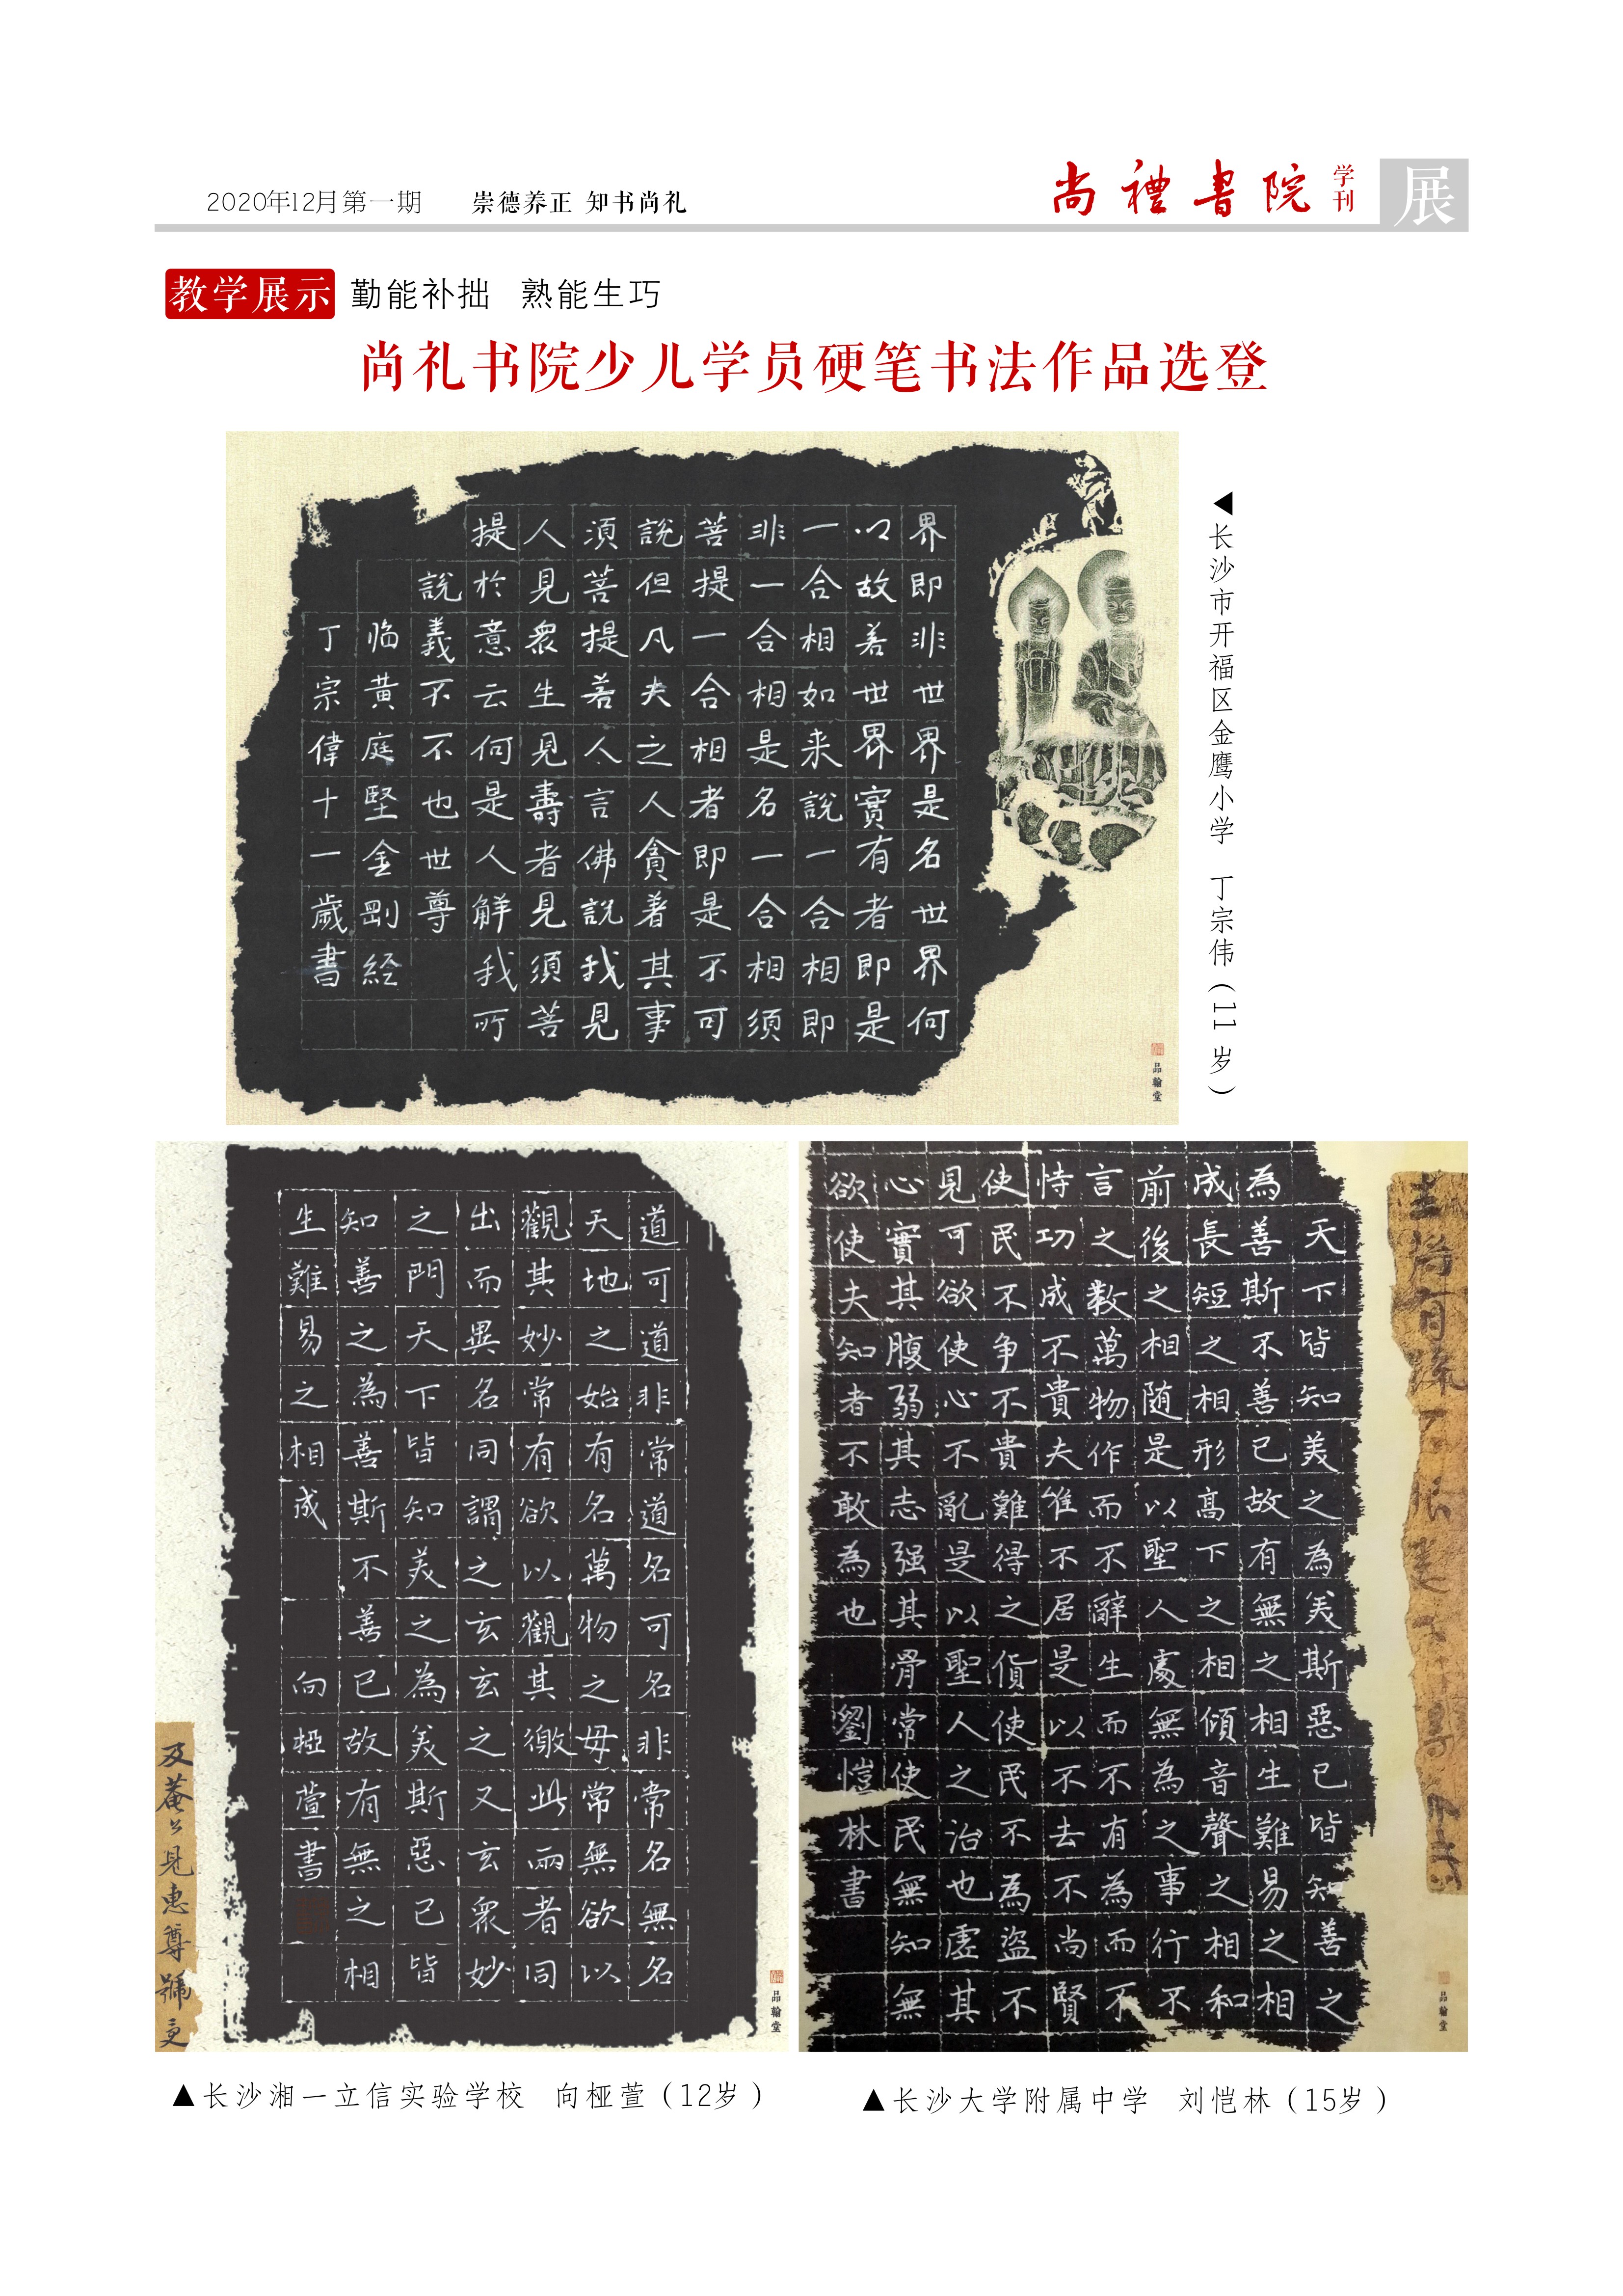 2020年12月第一期 崇德养正 知书尚礼
尚禮書院 学刊 展
教学展示 勤能补拙 熟能生巧
尚礼书院少儿学员硬笔书法作品选登
界即非世界是名世界何
以故若世界實有者即是
一合相如来說一合相即
非一合相是名一合相須
菩提一合相者即是不可
說但凡夫之人貪著其事
須菩提若人言佛說我見
人見眾生見壽者見須菩
提於意云何是人解我所
說義不不也世尊
临黄庭堅金剛経
丁宗偉十一歲書
品翰堂
◀长沙市开福区金鹰小学 丁宗伟(11岁)
道可道非常道名可名非常名無名
天地之始有名萬物之母常無欲以
觀其妙常有欲以觀其徼此兩者同
出而異名同謂之玄玄之又玄衆妙
之門天下皆知美之為美斯惡已皆
知善之為善斯不善已故有無之相
生難易之相成 向桠萱書
及菴公見惠尊號
品翰堂
▲长沙湘一立信实验学校 向桠萱(12岁)
天下皆知美之為美斯惡已皆知善之
為善斯不善已故有無之相生難易之相
成長短之相形高下之相傾音聲之相和
前後之相随是以聖人處無為之事行不
言之教萬物作而不辭生而不有為而不
恃功成不貴夫惟不居是以不去不尚賢
使民不争不貴難得之貨使民不為盜不
見可欲使心不亂是以聖人之治也虛其
心實其腹弱其志强其骨常使民無知無
欲使夫知者不敢為也 劉愷林書
品翰堂
▲长沙大学附属中学 刘恺林(15岁)